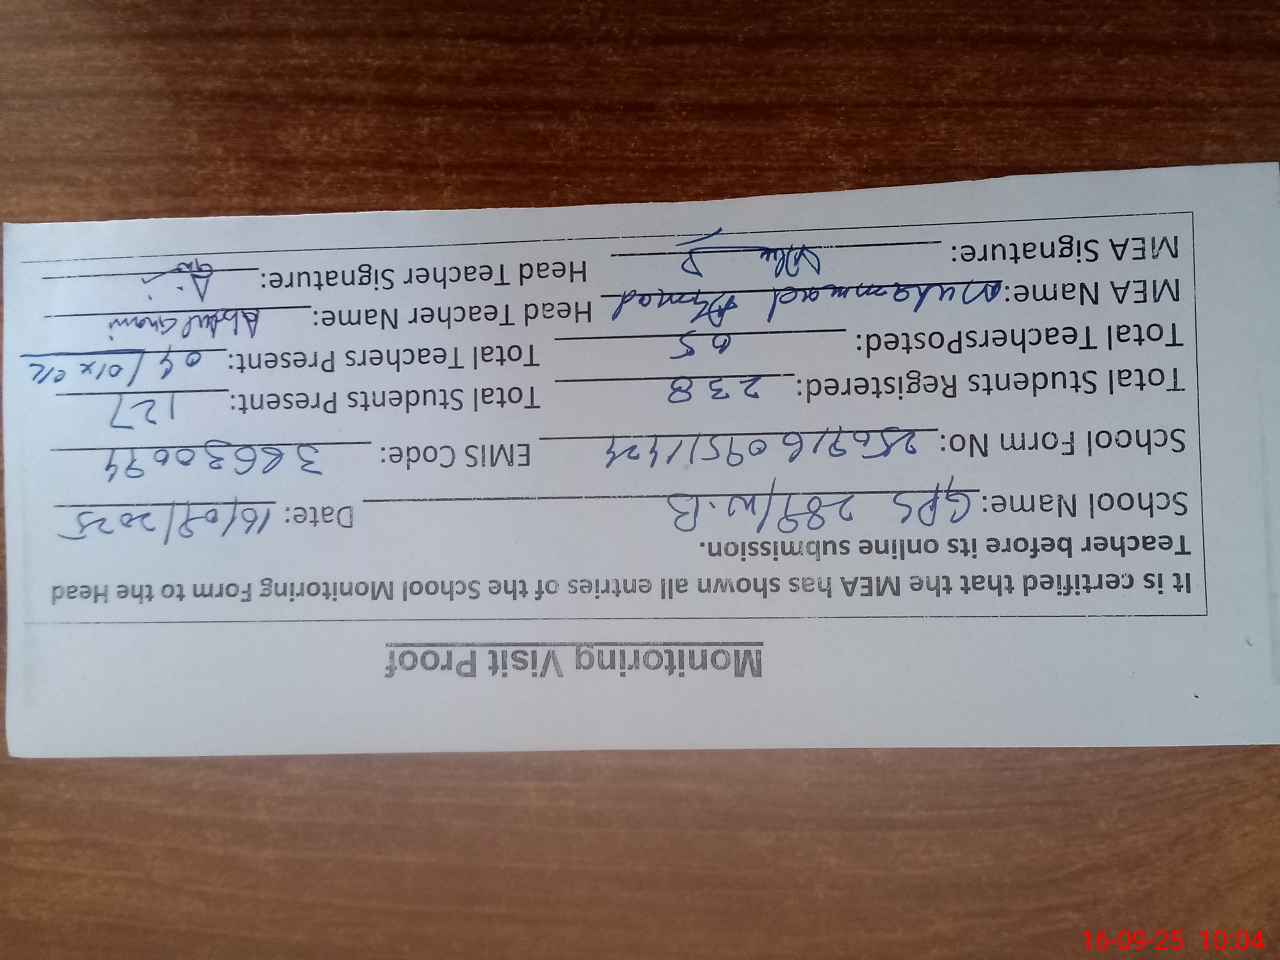 Monitoring Visit Proof
It is certified that the MEA has shown all entries of the School Monitoring Form to the Head
Teacher before its online submission.
School Name: GPS 289/W.B Date: 16/09/2025
School Form No: EMIS Code: 36630094
Total Students Registered: 238 Total Students Present: 127
Total TeachersPosted: 05 Total Teachers Present: 04/01x c/l
MEA Name: Muhammad Ahmad Head Teacher Name: Abdul Ghani
MEA Signature: Head Teacher Signature:
16-09-25 10:04